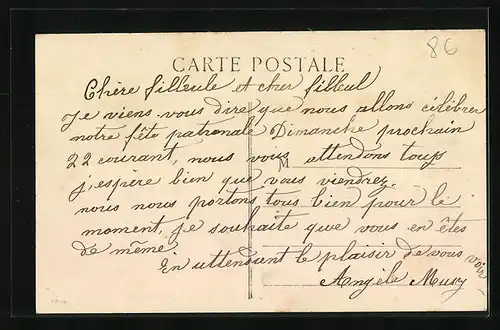 86
CARTE POSTALE
Chère filleule et cher filleul
Je viens vous dire que nous allons célébrer
notre fête patronale Dimanche prochain
22 courant, nous vous attendons tous
M
j'espère bien que vous viendrez,
nous nous portons tous bien pour le
moment, je souhaite que vous en êtes
de même
En attendant le plaisir de vous voir
Angèle